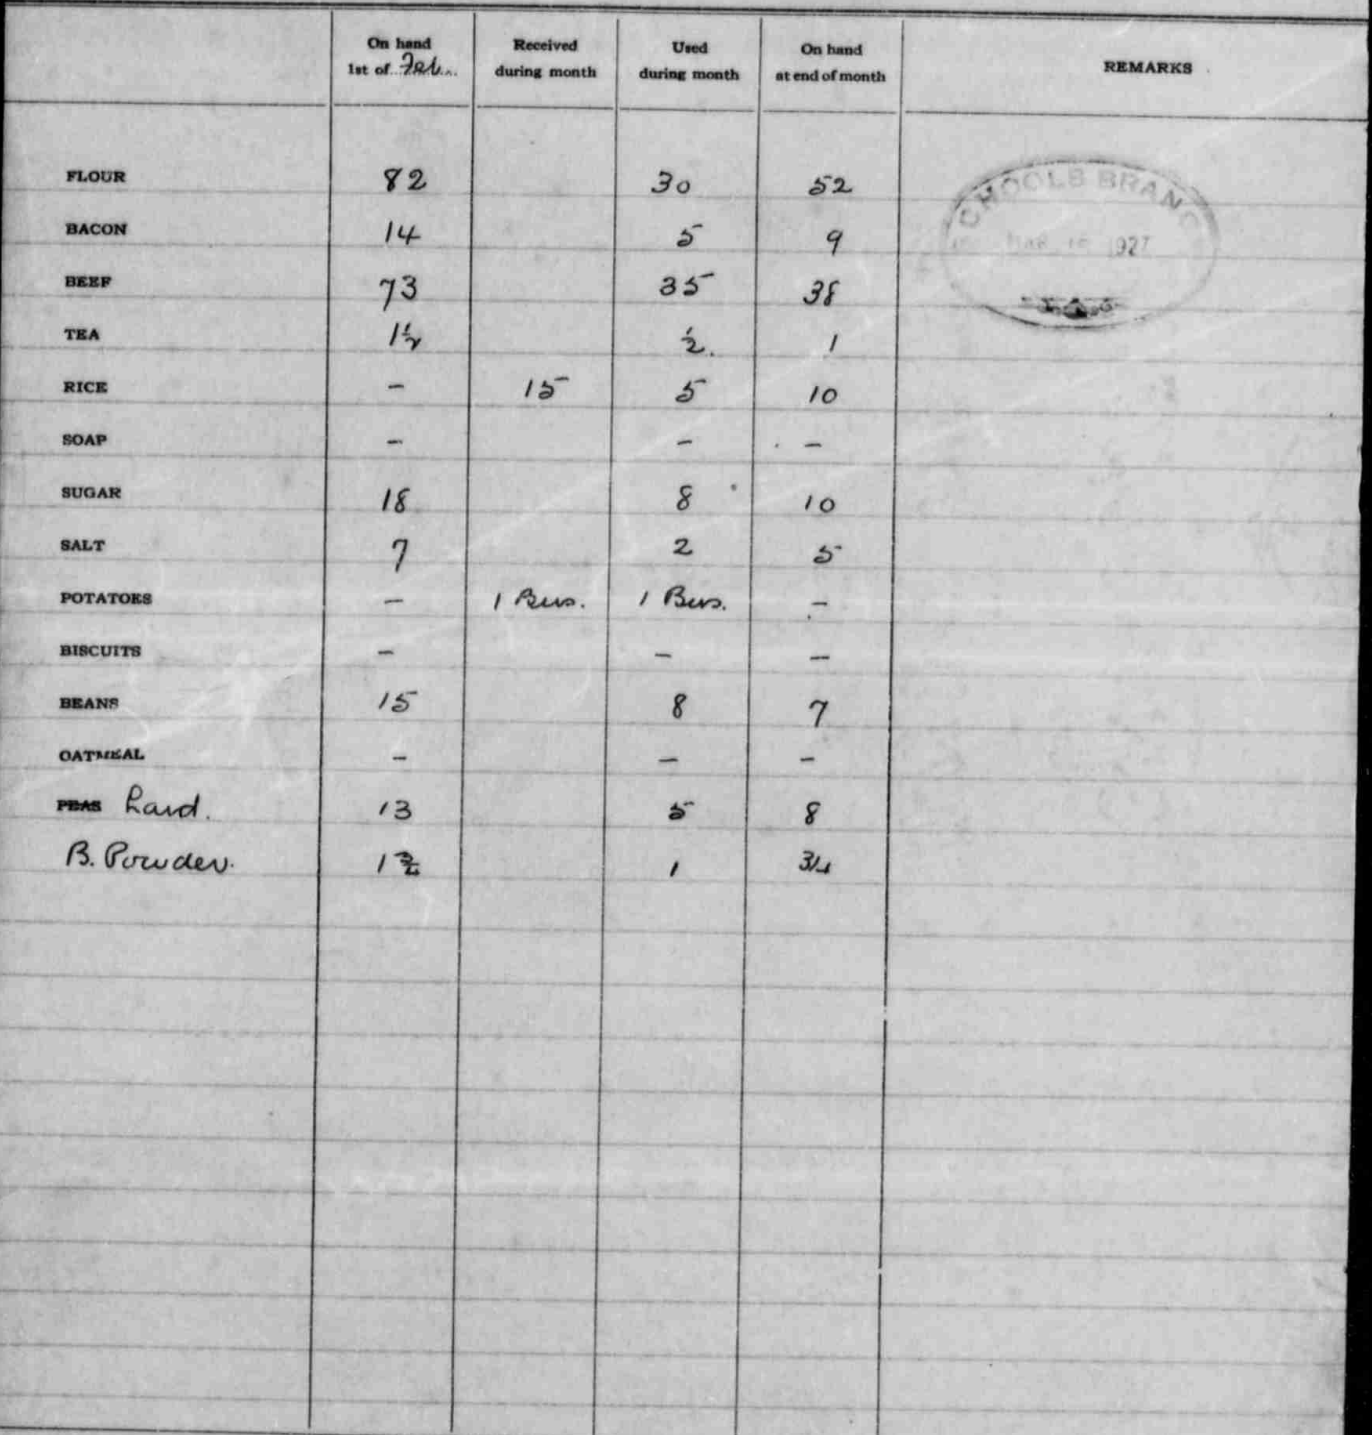 On hand 1st of Feb. Received during month Used during month On hand at end of month REMARKS
FLOUR 82 30 52
BACON 14 5 9
BEEF 73 35 38
TEA 1½ ½. 1
RICE – 15 5 10
SOAP – – –
SUGAR 18 8 10
SALT 7 2 5
POTATOES – 1 Bus. 1 Bus. –
BISCUITS – – –
BEANS 15 8 7
OATMEAL – – –
PEAS Lard. 13 5 8
B. Powder. 1¾ 1 3/4
CHOOLS BRANC
MAR 1927